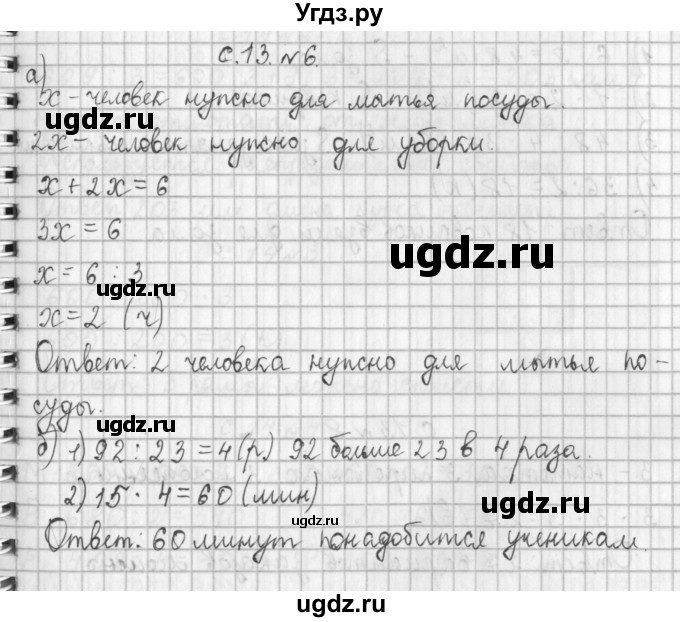 Угдз.ру
с. 13. №6.
а)
х - человек нужно для мытья посуды.
ugdz.ru
2х - человек нужно для уборки.
х + 2х = 6
3х = 6
ugdz.ru
х = 6 : 3
ugdz.ru
х = 2 (ч)
Ответ: 2 человека нужно для мытья по-
суды.
ugdz.ru
б) 1) 92 : 23 = 4 (р.) 92 больше 23 в 4 раза.
ugdz.ru
2) 15 · 4 = 60 (мин)
ugdz.ru
Ответ: 60 минут понадобится ученикам.
ugdz.ru